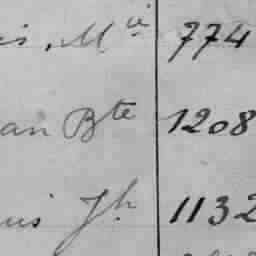 is, Mie 774
an Bte 1208
uis Jh 1132